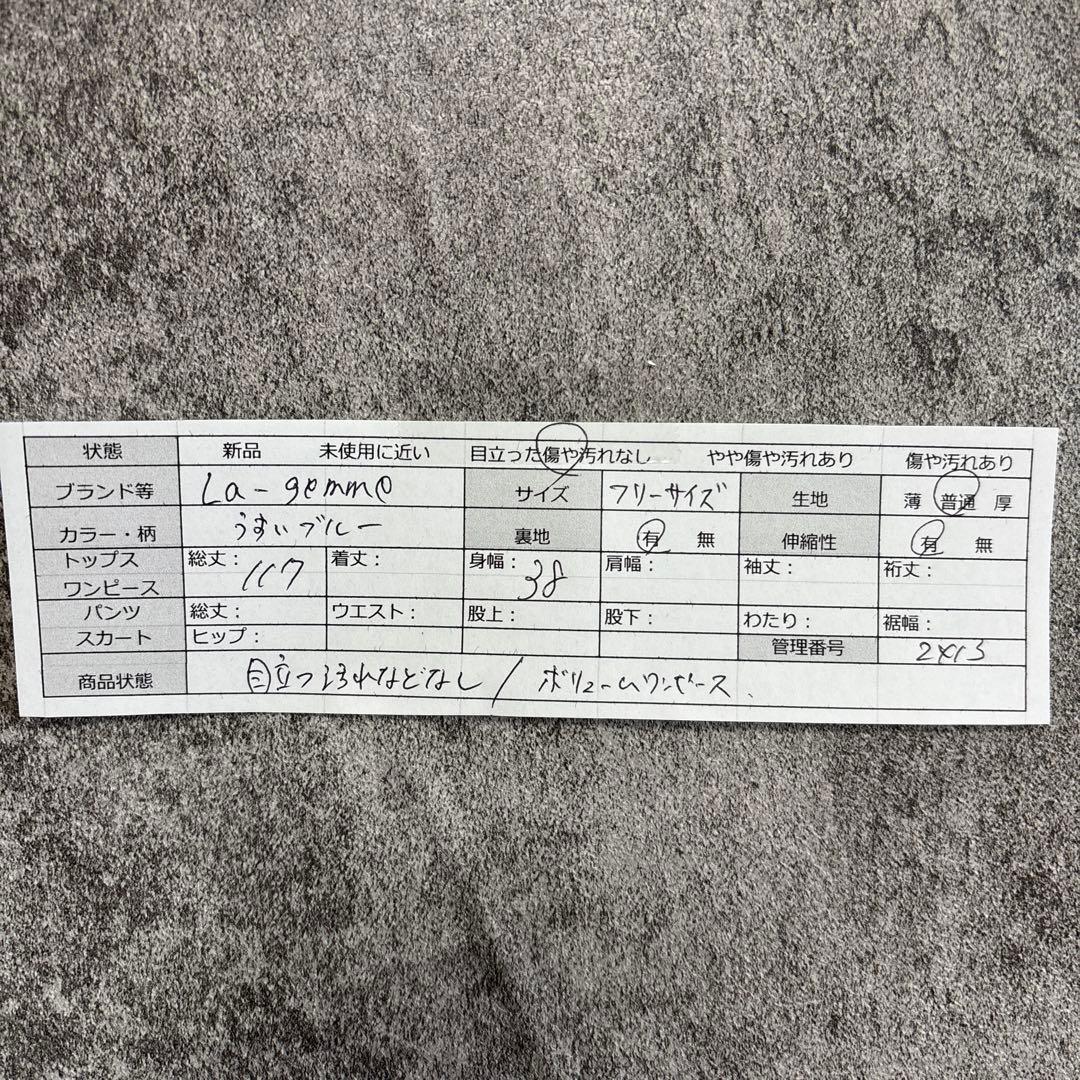 状態 新品 未使用に近い 目立った傷や汚れなし やや傷や汚れあり 傷や汚れあり
ブランド等 La-gemme サイズ フリーサイズ 生地 薄 普通 厚
カラー・柄 うすいブルー 裏地 有 無 伸縮性 有 無
トップス 総丈： 117 着丈： 身幅： 38 肩幅： 袖丈： 裄丈：
ワンピース
パンツ 総丈： ウエスト： 股上： 股下： わたり： 裾幅：
スカート ヒップ： 管理番号
商品状態 目立つ汚れなどなし / ボリュームワンピース、